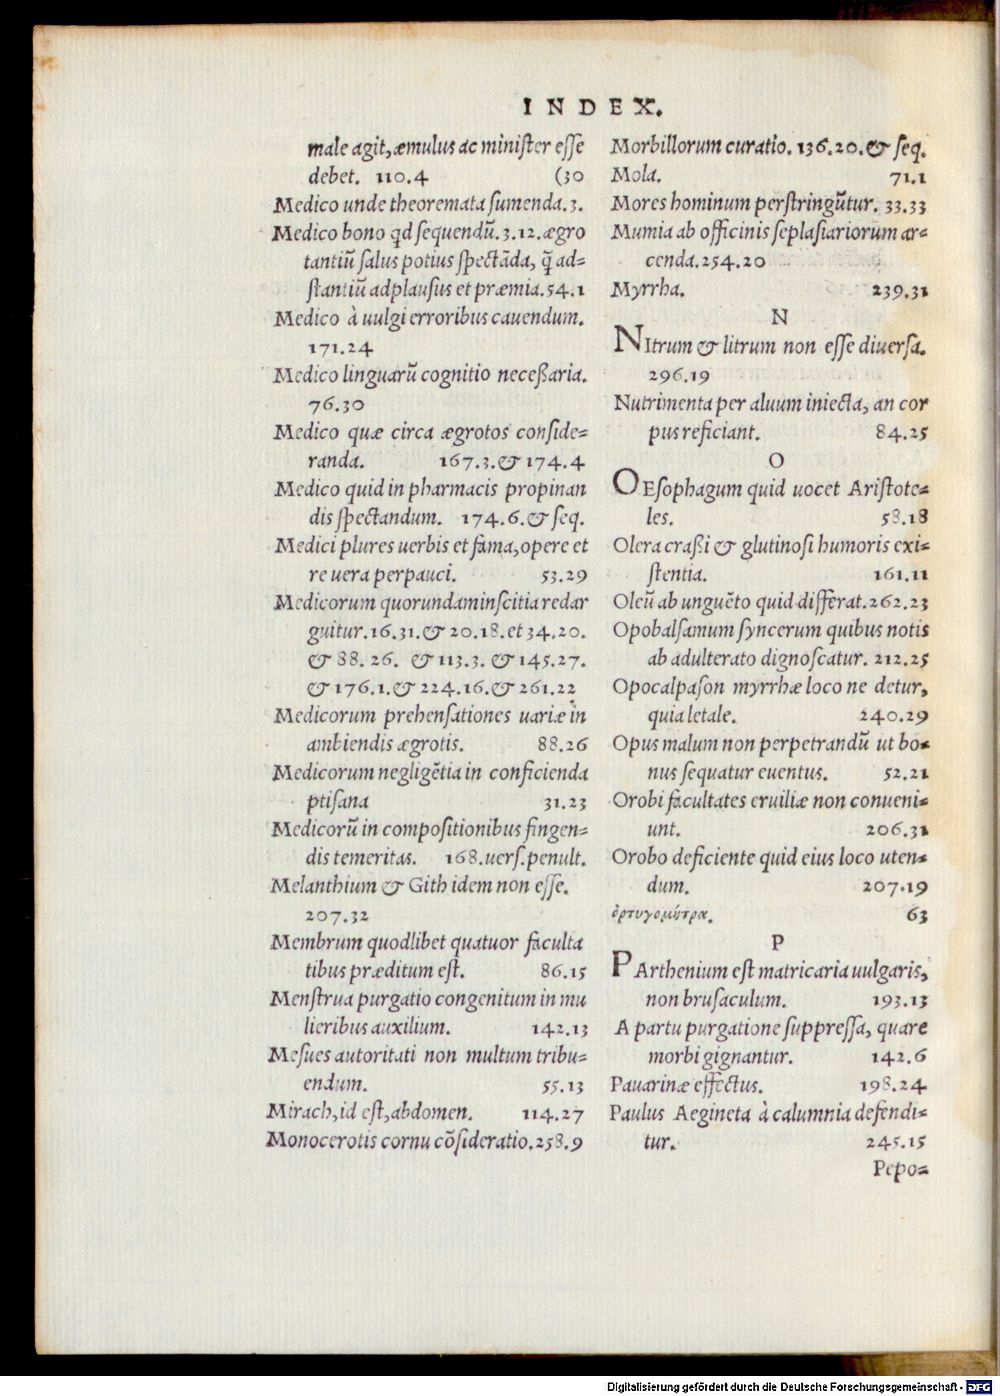 INDEX.
male agit, æmulus ac minister esse
debet. 110.4 (30
Medico unde theoremata sumenda. 3.
Medico bono qd sequendũ. 3.12. ægro
tantiũ salus potius spectãda, q̃ ad=
stantiũ adplausus et præmia. 54.1
Medico à uulgi erroribus cauendum.
171.24
Medico linguarũ cognitio necessaria.
76.30
Medico quæ circa ægrotos conside=
randa. 167.3. & 174.4
Medico quid in pharmacis propinan
dis spectandum. 174.6. & seq.
Medici plures uerbis et fama, opere et
re uera perpauci. 53.29
Medicorum quorundam inscitia redar
guitur. 16.31. & 20.18. et 34.20.
& 88.26. & 113.3. & 145.27.
& 176.1. & 224.16. & 261.22
Medicorum prehensationes uariæ in
ambiendis ægrotis. 88.26
Medicorum negligẽtia in conficienda
ptisana 31.23
Medicorũ in compositionibus fingen=
dis temeritas. 168. uers. penult.
Melanthium & Gith idem non esse.
207.32
Membrum quodlibet quatuor faculta
tibus præditum est. 86.15
Menstrua purgatio congenitum in mu
lieribus auxilium. 142.13
Mesues autoritati non multum tribu=
endum. 55.13
Mirach, id est, abdomen. 114.27
Monocerotis cornu cõsideratio. 258.9
Morbillorum curatio. 136.20. & seq.
Mola. 71.1
Mores hominum perstringũtur. 33.33
Mumia ab officinis seplasiariorum ar=
cenda. 254.20
Myrrha. 239.31
N
NItrum & litrum non esse diuersa.
296.19
Nutrimenta per aluum iniecta, an cor
pus reficiant. 84.25
O
OEsophagum quid uocet Aristote=
les. 58.18
Olera crassi & glutinosi humoris exi=
stentia. 161.11
Oleũ ab unguẽto quid differat. 262.23
Opobalsamum syncerum quibus notis
ab adulterato dignoscatur. 212.25
Opocalpason myrrhæ loco ne detur,
quia letale. 240.29
Opus malum non perpetrandũ ut bo=
nus sequatur euentus. 52.21
Orobi facultates eruiliæ non conueni=
unt. 206.31
Orobo deficiente quid eius loco uten=
dum. 207.19
ὀρτυγομήτρα. 63
P
PArthenium est matricaria uulgaris,
non brusaculum. 193.13
A partu purgatione suppressa, quare
morbi gignantur. 142.6
Pauarinæ effectus. 198.24
Paulus Aegineta à calumnia defendi=
tur. 245.15
Pepo=
Digitalisierung gefördert durch die Deutsche Forschungsgemeinschaft - DFG